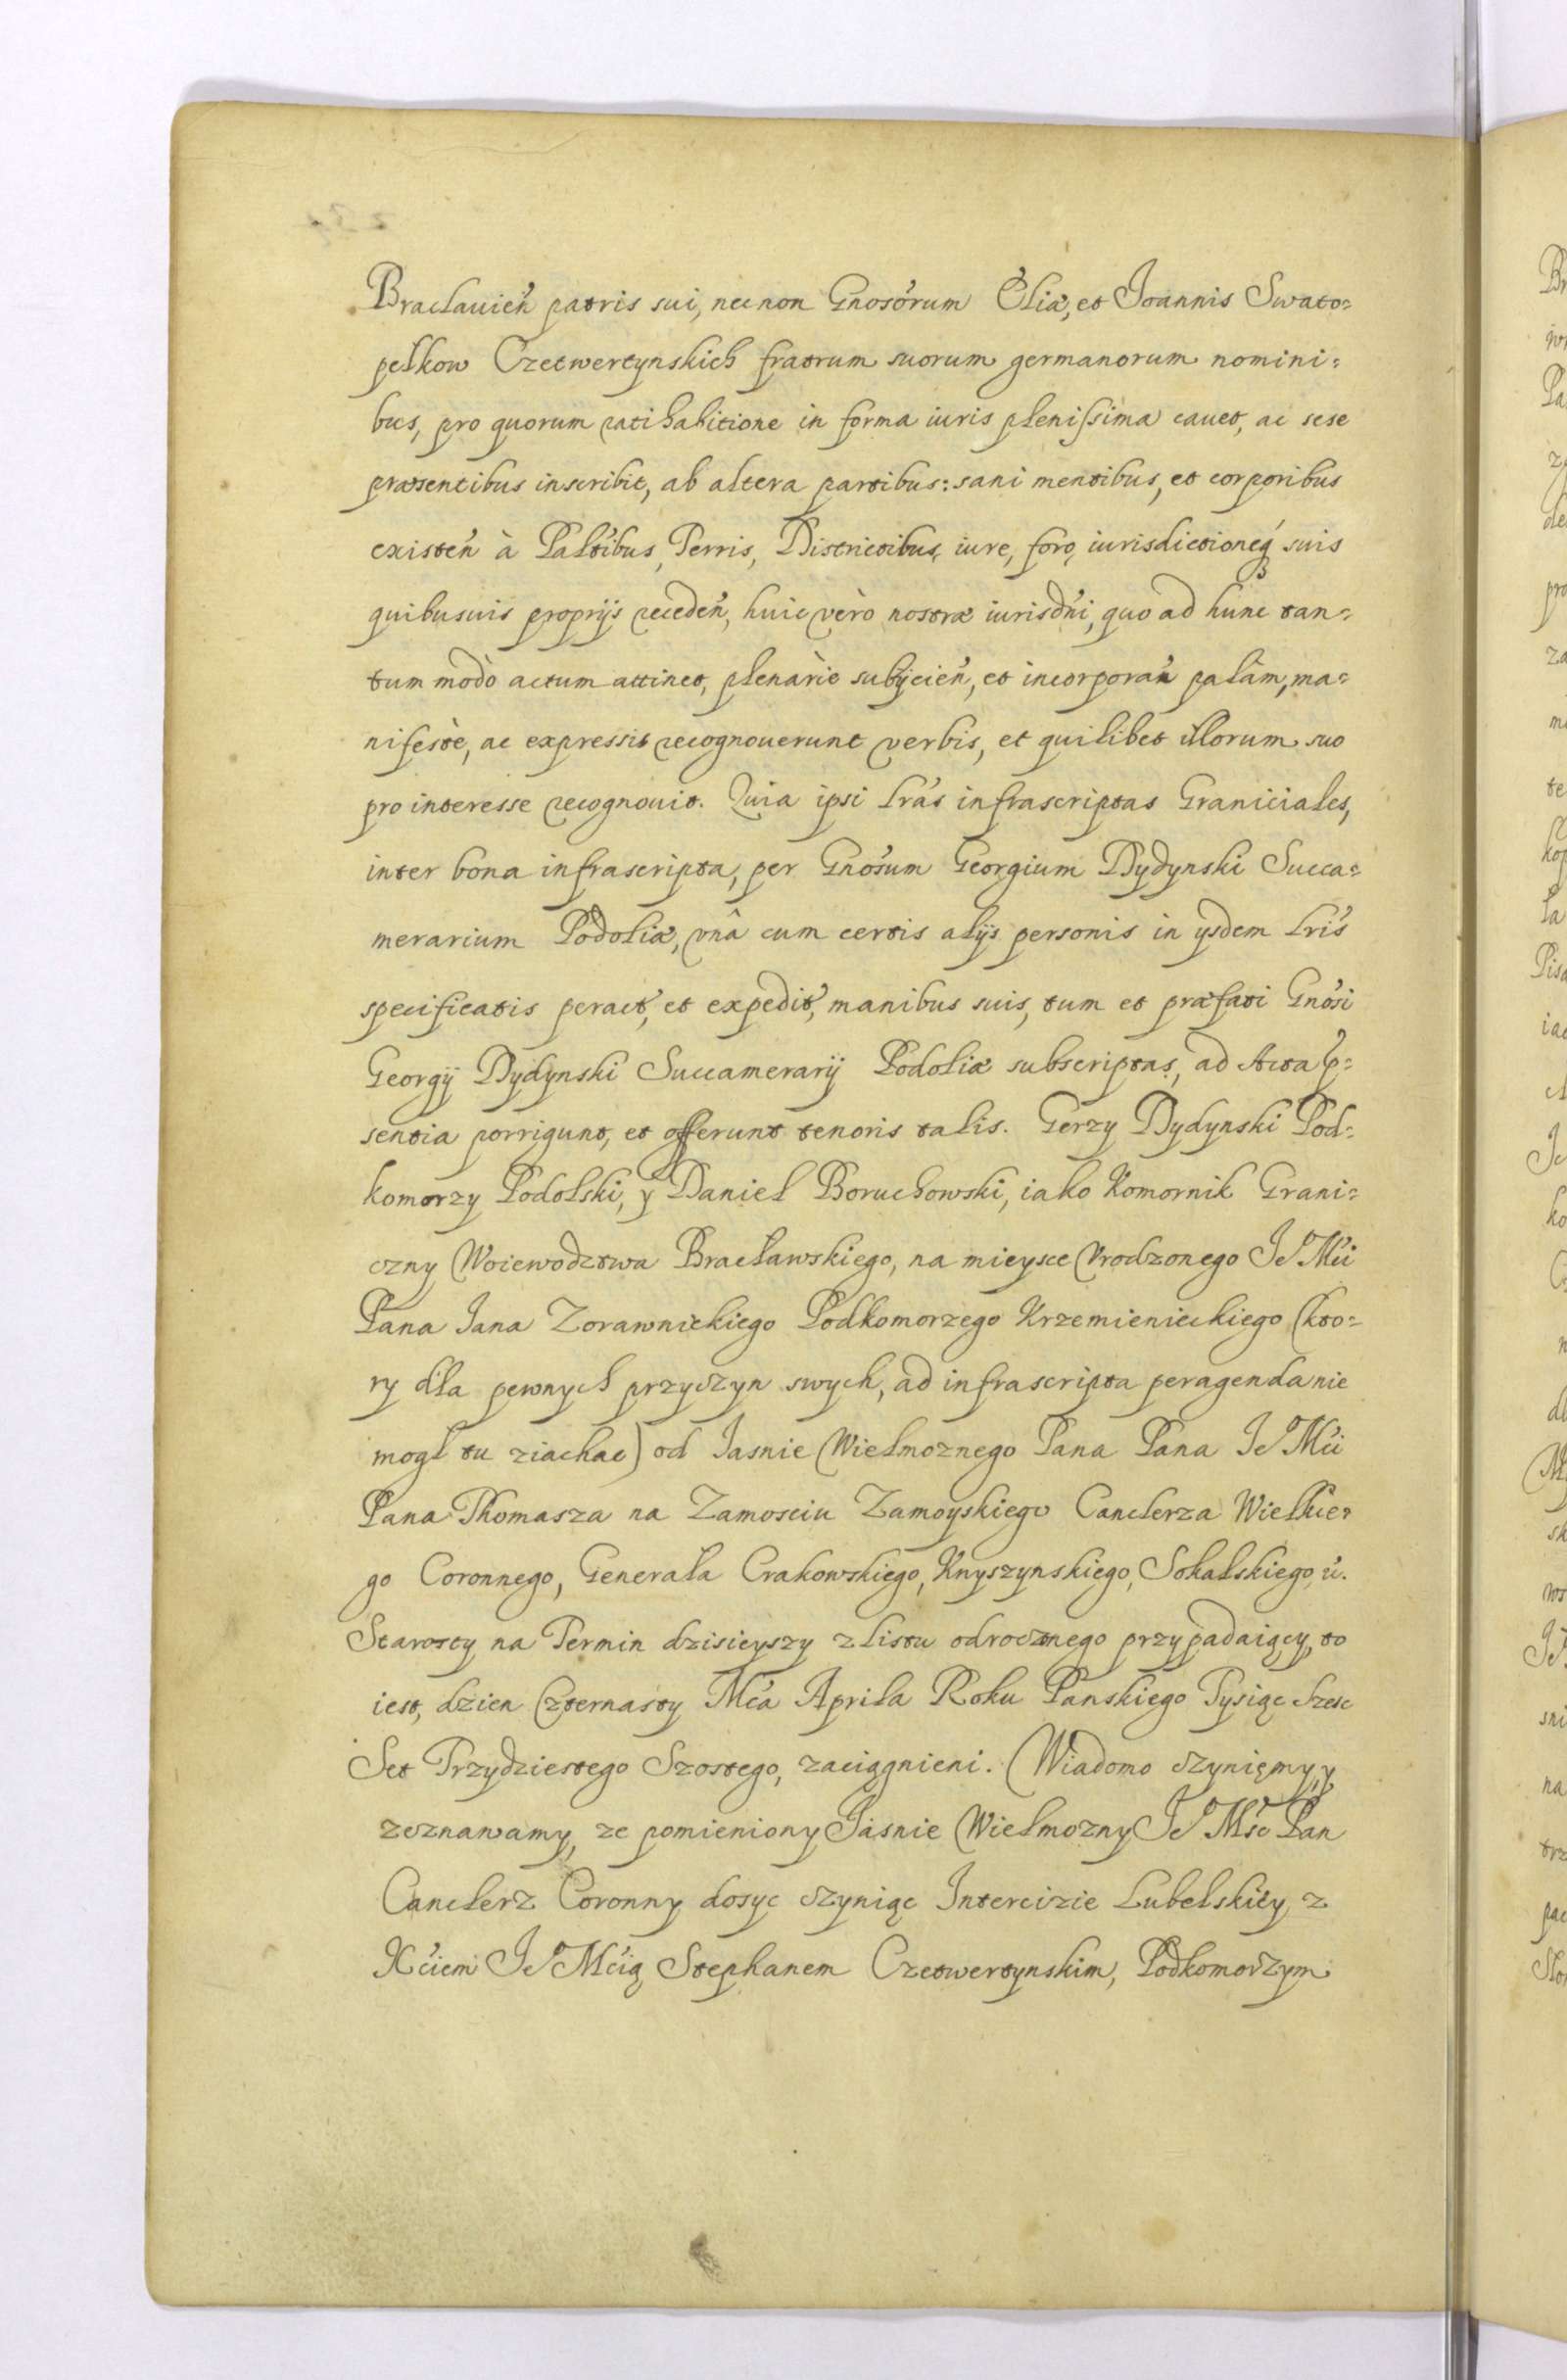 Braclauień patris sui, nec non Gnosórum Eliæ, et Joannis Swato=
pełkow Czetwertynskich fratrum suorum germanorum nomini=
bus, pro quorum ratihabitione in forma iuris plenissima cauet, ac sese
præsentibus inscribit, ab altera partibus: sani mentibus, et corporibus
existeń à Paltibus, Terris, Districtibus, iure, foro, iurisdictioneq́ suis
quibusuis proprijs recedeń, huic verò nostræ iurisdńi, quo ad hunc tan=
tum modò actum attinet, plenàrie subijcień, et incorporań palàm, ma=
nifestè, ac expressis recognouerunt verbis, et quilibet illorum suo
pro interesse recognouit. Quia ipsi Lrás infrascriptas Graniciales,
inter bona infrascripta, per Gnosúm Georgium Dydynski Succa=
merarium Podoliæ, vnâ cum certis alijs personis in ysdem Lrís
specificatis peract́, et expedit́, manibus suis, tum et præfati Gnośi
Georgij Dydynski Succamerarij Podoliæ subscriptas, ad Acta p=
sentia porrigunt, et offerunt tenoris talis. Gerzy Dydynski Pod=
komorzy Podolski, y Daniel Boruchowski, iako Komornik Grani=
czny Woiewodztwa Bracławskiego, na mieysce Vrodzonego Je Mći
Pana Jana Zorawnickiego Podkomorzego Krzemienieckiego (kto=
ry dla pewnych przyczyn swych, ad infrascripta peragenda nie
mogł tu ziachac) od Jasnie Wielmoznego Pana Pana Je Mći
Pana Thomasza na Zamosciu Zamoyskiego Canclerza Wielkie=
go Coronnego, Generała Crakowskiego, Knyszynskiego, Sokalskiego, ú.
Starosty na Termin dzisieyszy z listu odrocznego przypadaiący, to
iest, dzien Czternasty Mcá Aprila Roku Panskiego Tysiąc Szesc
Set Trzydziestego Szostego, zaciągnieni. Wiadomo czyniemy, y
zeznawamy, ze pomieniony Jasnie Wielmozny Je Mść Pan
Canclerz Coronny dosyc czyniąc Intercizie Lubelskiey, z
Xćiem Je Mćią Stephanem Czetwertynskim, Podkomorzym